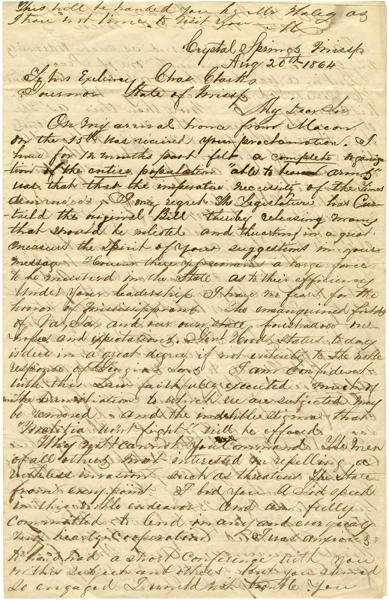 This will be handed you by Mr Haley as
I have not time to visit you
Crystal Springs Missp
Aug 20th 1864
To his Exelency Chas Clark
Governor State of Missp
My Dear Sir
On my arrival home from Macon
on the 15th was received your proclamation. I
have for 12 months past felt a complete organiza
tion of the entire population "able to bear arms"
was that that the imperative necessity of the times
demanded. I only regret the Legislature has Cur
taild the original Bill thereby releasing many
that should be enlisted and thwarting in a great
measure the Spirit of your suggestions in your
message However there yet remains a large force
to be mustered in the State as to their efficiency
under your leadership I have no fear for the
honor of Mississippians. The ensanguined fields
of Va, Ga, and our own State, foreshadow our
hopes and expectations. Genl Hood States to day
is due in a great degree if not entirely to the noble
response of Georgias Sons I am Confident
with this Law faithfully executed much of
the humiliation to which we are subjected may
be removed and the indelible stigma that
"Militia wont fight" will be effaced
Why not Cannot you Command the men
of all others most interested in repelling a
ruthless invation such as threatens the State
from every point I bid you A God speed
in this noble endeavor and am fully
committed to lend an any and energetically
my hearty Cooperation I was anxious
to have had a short Conference with you
on this subject and others but you seemed
so engaged I would not trouble you